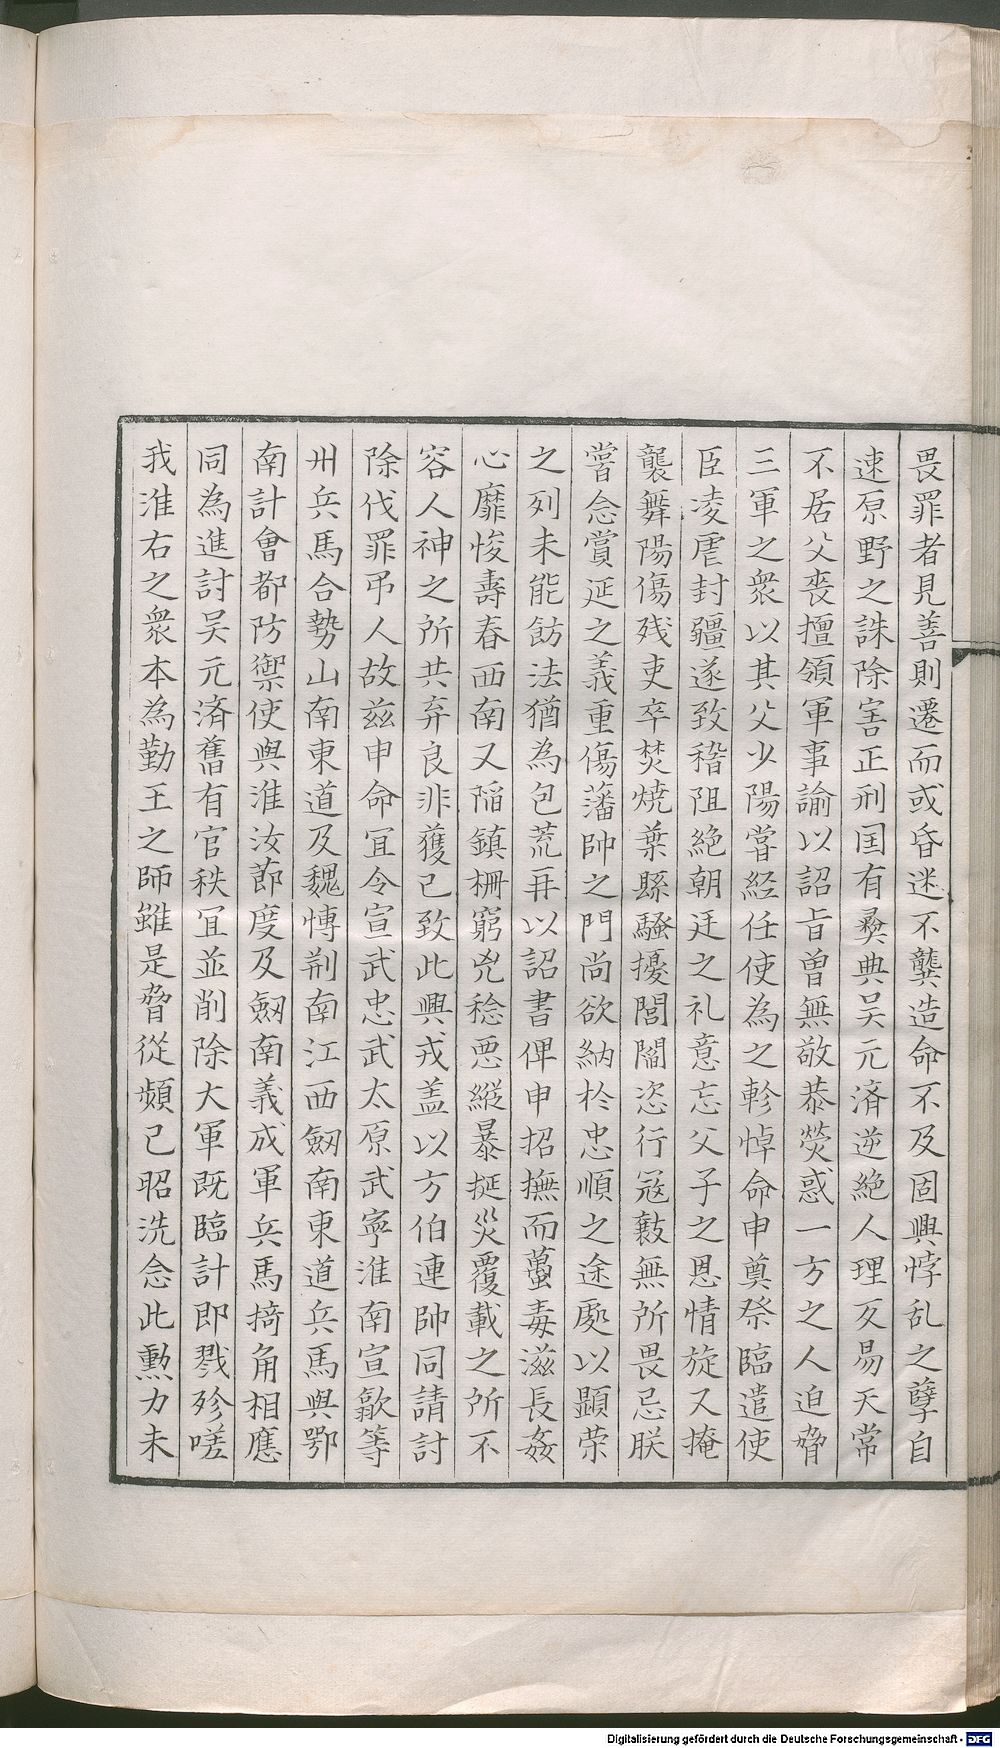 畏罪者見善則遷而或昏迷不龔造命不及固興悖乱之孽自
速原野之誅除害正刑国有彜典吴元済逆絶人理反易天常
不居父喪擅領軍事諭以詔旨曽無敬恭熒惑一方之人迫脅
三軍之衆以其父少陽嘗経任使為之軫悼命申奠祭臨遣使
臣凌虐封疆遂致稽阻絶朝廷之礼意忘父子之恩情旋又掩
襲舞陽傷残吏卒焚燒葉縣騷擾閭閻恣行冦敚無所畏忌朕
嘗念賞延之義重傷藩帥之門尚欲納於忠順之途處以顕荣
之列未能飭法猶為包荒再以詔書俾申招撫而蠆毒滋長姦
心靡悛壽春西南又陷鎮栅窮兇稔悪縱暴挻災覆載之所不
容人神之所共弃良非獲已致此興戎盖以方伯連帥同請討
除伐罪弔人故兹申命冝令宣武忠武太原武寧淮南宣歙等
州兵馬合勢山南東道及魏愽荆南江西劔南東道兵馬與鄂
南計會都防禦使與淮汝莭度及劔南義成軍兵馬掎角相應
同為進討吴元済舊有官秩冝並削除大軍既臨計即戮殄嗟
我淮右之衆本為勤王之師雖是脅従頻已昭洗念此勲力未
Digitalisierung gefördert durch die Deutsche Forschungsgemeinschaft - DFG